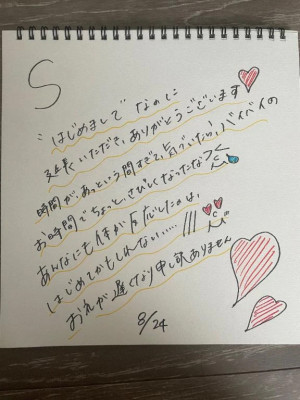 S
"はじめまして"なのに
延長いただき、ありがとうございます
時間が、あっという間すぎて、気づいたら、バイバイの
お時間でちょっと、さびしくなったな
あんなにも体が反応したのは、
はじめてかもしれない……!!!
お礼が遅くなり申し訳ありません
8/24